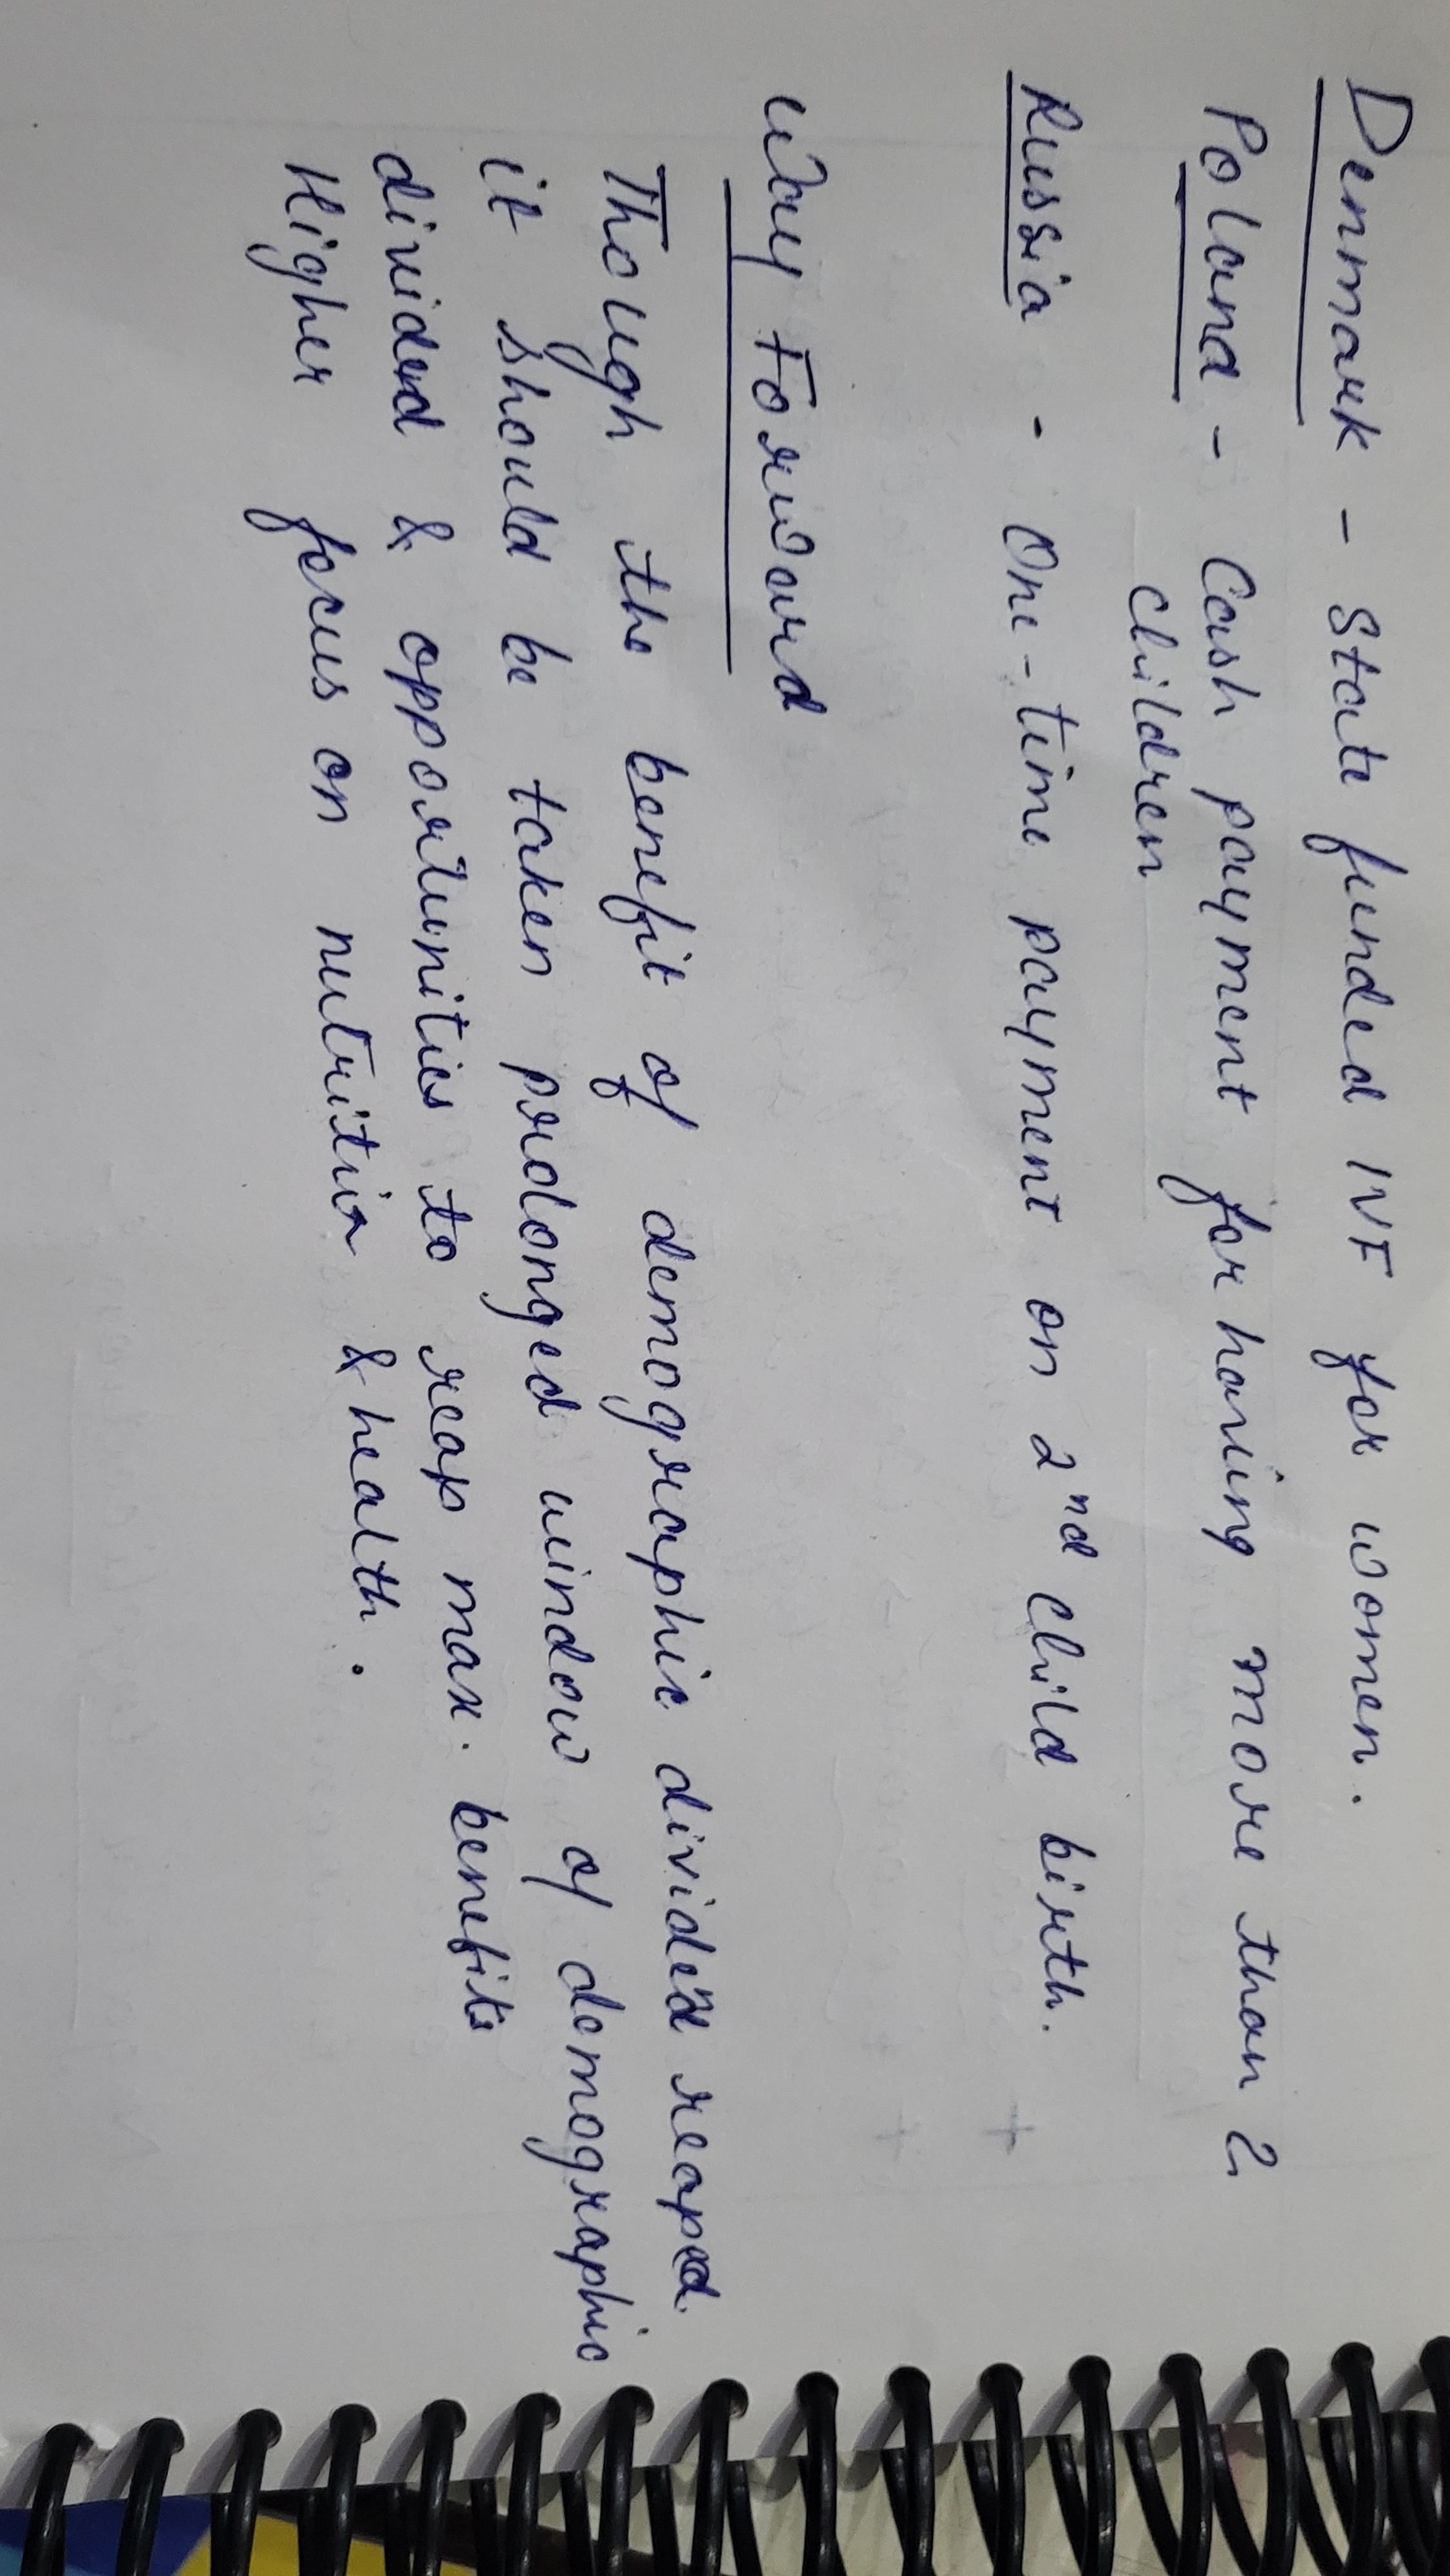 Denmark - State funded IVF for women.
Poland - Cash payment for having more than 2
children
Russia - One-time payment on 2nd child birth.
Way Forward
Though the benefit of demographic dividend reaped
it should be taken prolonged window of demographic
dividend & opportunities to reap max. benefits
Higher focus on nutrition & health.